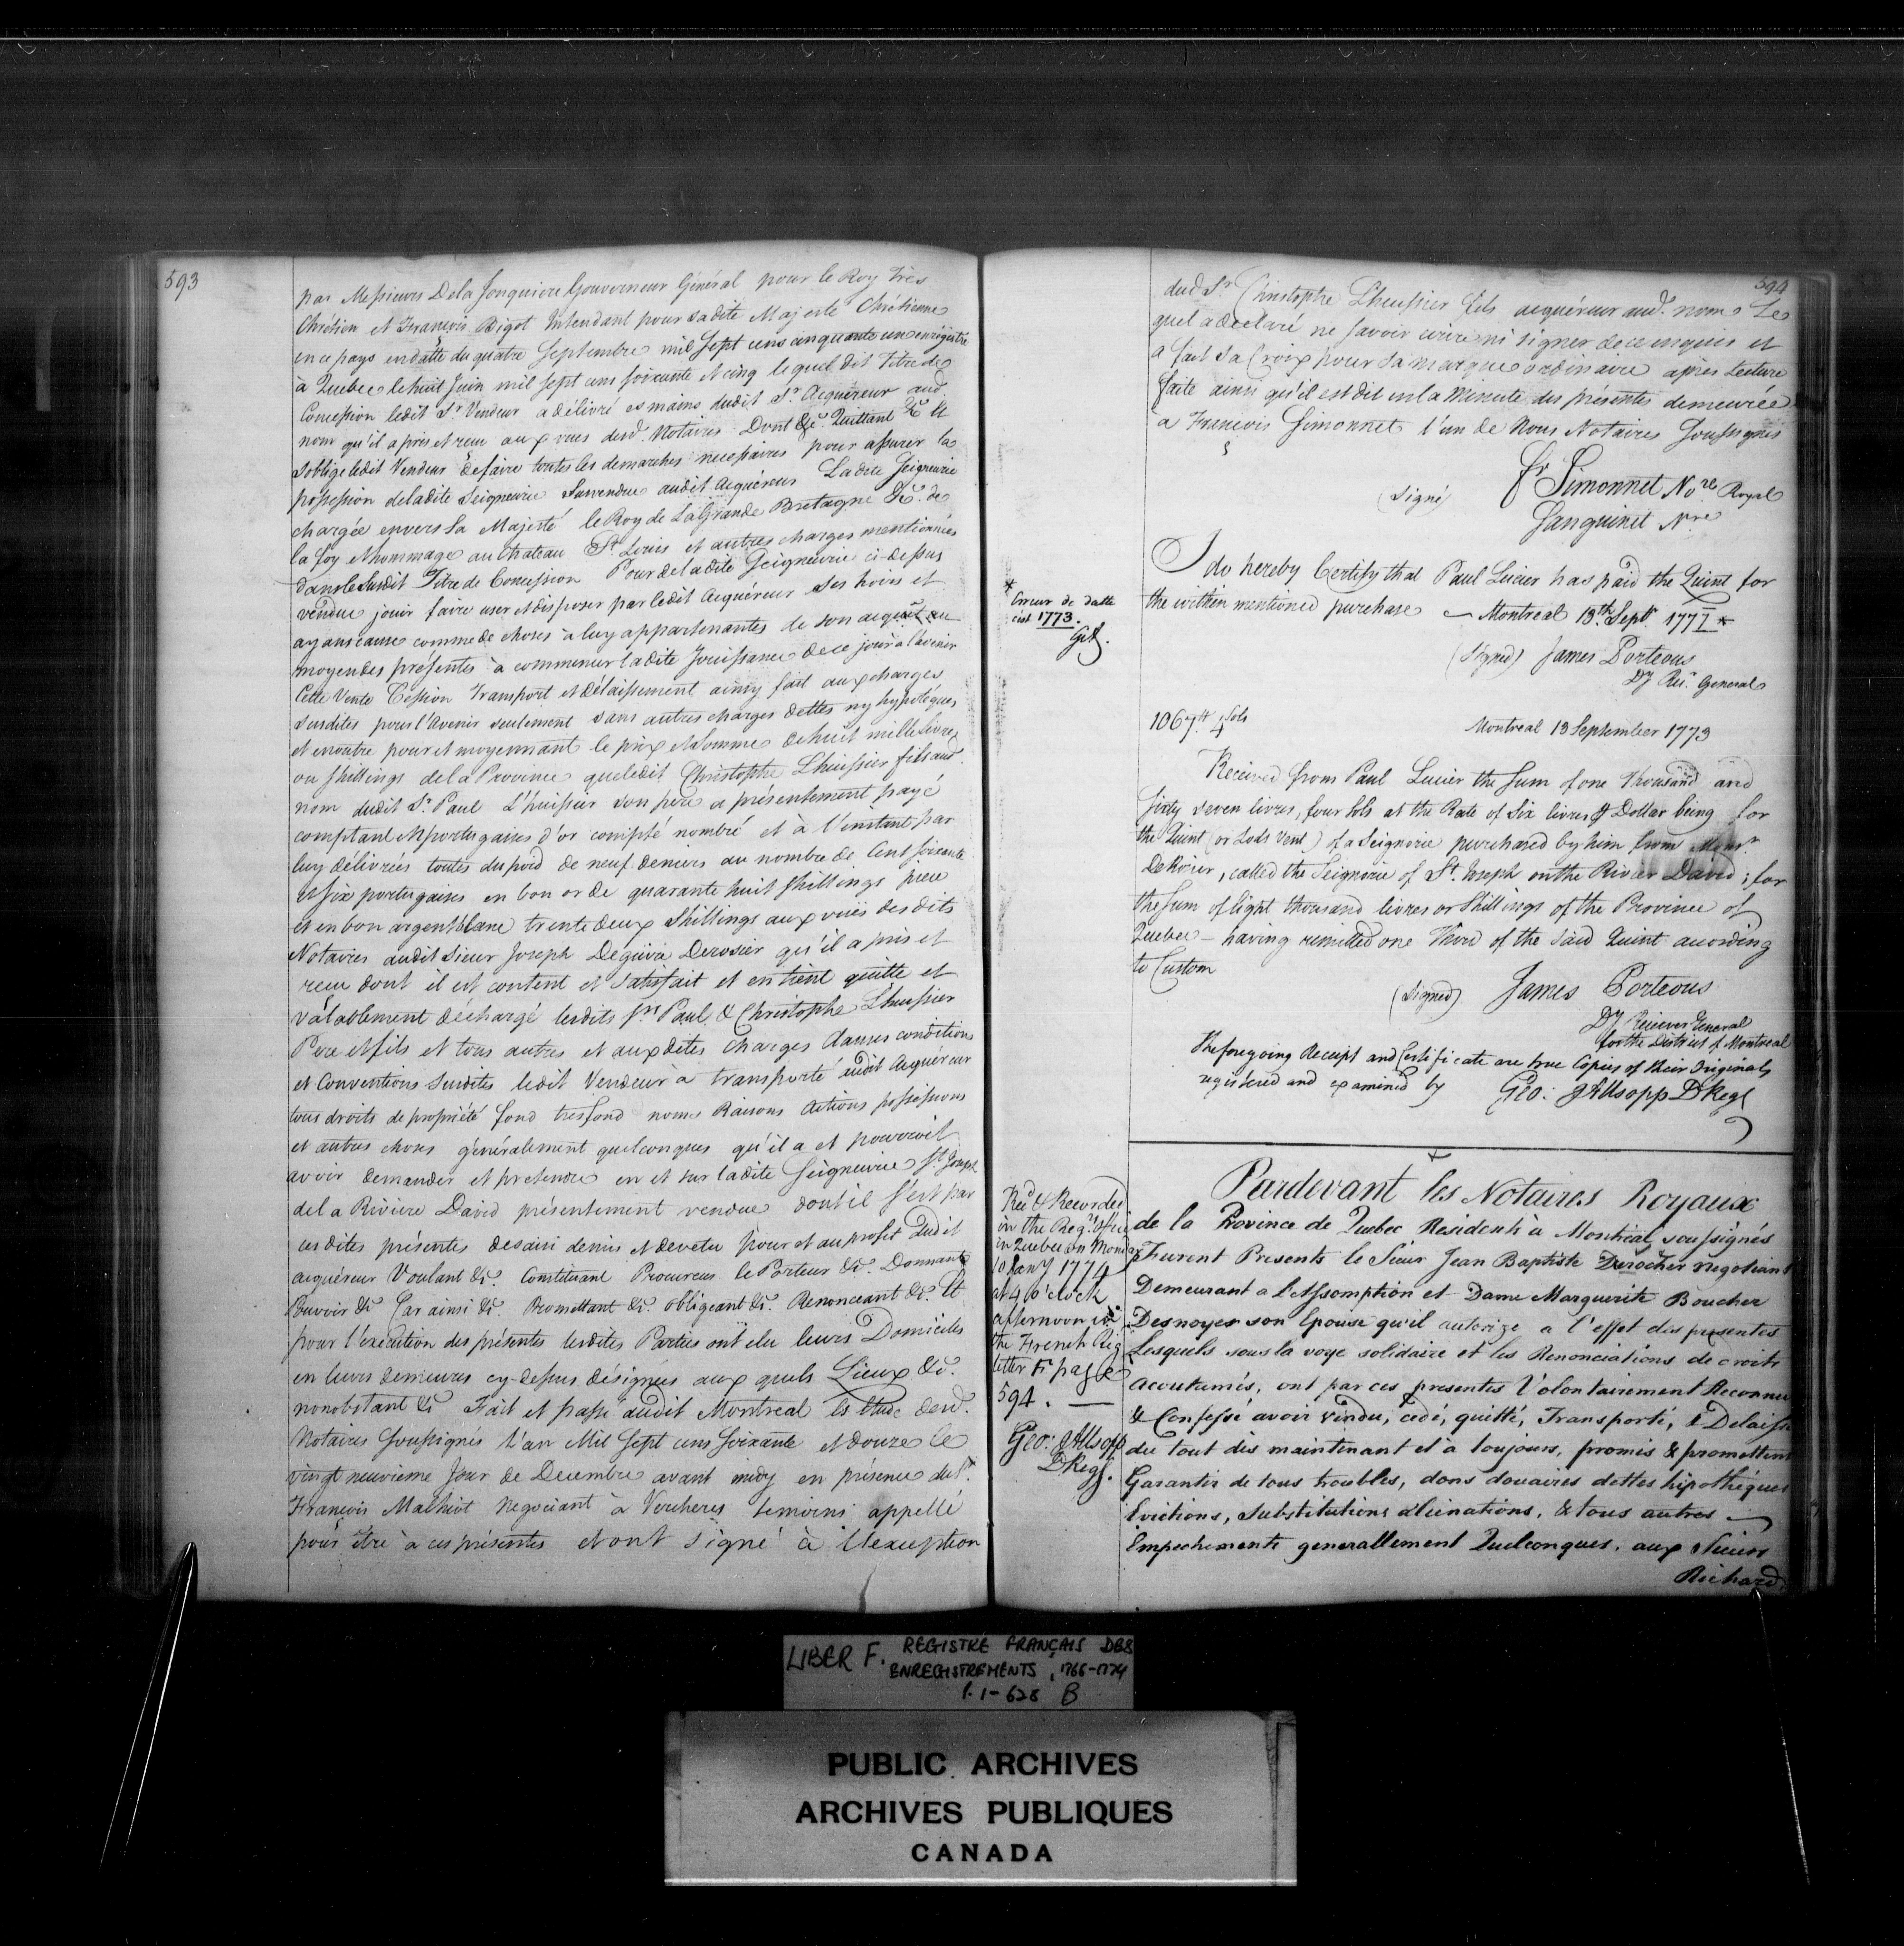 593
par Messieurs Dela Jonquiere Gouverneur Général pour le Roy très
Chrétien et François Bigot Intendant pour sadite Majesté Chrétienne
en ce pays en datte du quatre Septembre mil sept cens cinquante un enrégistré
à Quebec le huit Juin mil sept cens soixante et cinq lequel dit Titre de
Concession ledit Sr Vendeur a délivré es mains dudit Sr Acquéreur aud.
nom qu'il a pris et reçu aux vues desd. Notaires Dont &c. Quittant &c. Et
s'oblige ledit Vendeur de faire toutes les demarches necessaires pour assurer la
possession deladite Seigneurie Survendue audit Acquéreur Ladite Seigneurie
chargée envers Sa Majesté le Roy de La Grande Bretagne &c. de
la foy et hommage au Chateau St. Louis et autres charges mentionnées
dans le Susdit Titre de Concession Pour de ladite Seigneurie ci-dessus
vendue jouir faire user et disposer par ledit Acquéreur Ses hoirs et
ayans cause comme de choses à luy appartenantes de son acquêt au
moyen des présentes à commencer ladite Jouissance de ce jour à l'avenir
Cette Vente Cession Transport et Délaissement ainsy fait aux charges
susdites pour l'avenir seulement sans autres charges dettes ny hypotéques
et en outre pour et moyennant le prix et Somme de huit mille livres
ou shillings de la Province que ledit Christophe Lhuissier fils aud.
nom dudit Sr. Paul L'huissier son pere a présentement payé
comptant en portugaises d'or compté nombré et à l'instant par
luy délivrées toutes du poid de neuf deniers au nombre de Cent soixante
et six portugaises en bon or de quarante huit shillings piece
et en bon argent blanc trente deux Shillings aux vuës des dits
Notaires audit Sieur Joseph Deguire Derosier qu'il a pris et
reçu dont il est content et Satisfait et en tient quitte et
valablement déchargé lesdits Srs Paul & Christophe Lhuissier
Pere et fils et tous autres et aux dites Charges clauses conditions
et Conventions Susdites ledit Vendeur à transporté audit Acquéreur
tous droits de propriété fond tresfond noms Raisons Actions possessions
et autres choses généralement quelconques qu'il a et pouvroit
avoir demander et pretendre en et sur ladite Seigneurie St. Joseph
de la Riviere David présentement vendue dont il s'est par
ces dites présentes desaisi demis et devetu pour et au profit dudit
acquéreur Voulant &c. Constituant Procureur le Porteur &c. Donnant
Pouvoir &c Car ainsi &c. Promettant &c. obligeant &c. Renonceant &c. Et
pour l'execution des présentes lesdites Parties ont élu leurs Domiciles
en leurs demeures cy-dessus désignées aux quels Lieux &c.
nonobstant &c Fait et passé audit Montreal es Etude desd.
Notaires Soussignés l'an Mil Sept cens Soixante et douze le
vingt neuvieme Jour de Decembre avant midy en présence du Sr.
François Malhiot Negociant à Vercheres temoins appellé
pour être à ces présentes et ont signé à l'exception
594
dud Sr. Christophe Lheussier fils acquéreur aud. nom Le
quel a declaré ne savoir ecrire ni signer de ce enquis et
a fait Sa Croix pour Sa marque ordinaire après Lecture
faite ainsi qu'il est dit en la Minute des présentes demeurée
à François Simonnet l'un de Nous Notaires Soussignés
(Signé) fr Simonnet Nore Royal
Sanguinet Nre
I do hereby Certify that Paul Lucier has paid the Quint for
the within mentioned purchase — Montreal 13th. Septr 1777 *
(Signed) James Porteous
Dy Rec. General
* Erreur de datte
cest 1773.
GA.
1067.tt 4 sols
Montreal 13 September 1773
Received from Paul Lucier the Sum of one Thousand and
Sixty seven livres, four Sols at the Rate of Six livres ⅌ Dollar being for
the Quint (or Lods Vent) of a Seignorie purchased by him from Monsr.
DeRosier, called the Seignorie of St. Joseph on the River David; for
the Sum of Eight thousand livres or Shillings of the Province of
Quebec – having remitted one Third of the Said Quint according
to Custom
(Signed) James Porteous
Dy Reciever General
for the District of Montreal
The foregoing Receipt and Certificate are true Copies of their Originals
registered and examined by Geo: Allsopp D Regr
Pardevant les Notaires Royaux
de la Province de Quebec Residents à Montréal, soussignés
Furent Presents le Sieur Jean Baptiste Durocher negotiant
Demeurant a L'Assomption et Dame Marguerite Boucher
Desnoyer son Epouse qu'il autorize a l'effet des presentes
Lesquels sous la voye solidaire et les Renonciations de droits
acoutumés, ont par ces presentes Volontairement Reconnu
& Confessé avoir vendu, cedé, quitté, Transporté, & Delaissé
du tout dès maintenant et a toujours, promis & promettent
Garantir de tous troubles, dons douaires dettes hipothéques
Evictions, Substitutions alienations, & tous autres
Empechements generallement Quelconques, aux Sieurs
Richard
Recd & Recorded
in the Regrs. Office
in Quebec on Monday
10 Jany 1774
at 4 o'clock
afternoon in
the French Reg
letter F: page
594. —
Geo: Allsopp
D Regr.
LIBER F. REGISTRE FRANÇAIS DES
ENREGISTREMENTS, 1766-1774
P. 1-628 B
PUBLIC ARCHIVES
ARCHIVES PUBLIQUES
CANADA